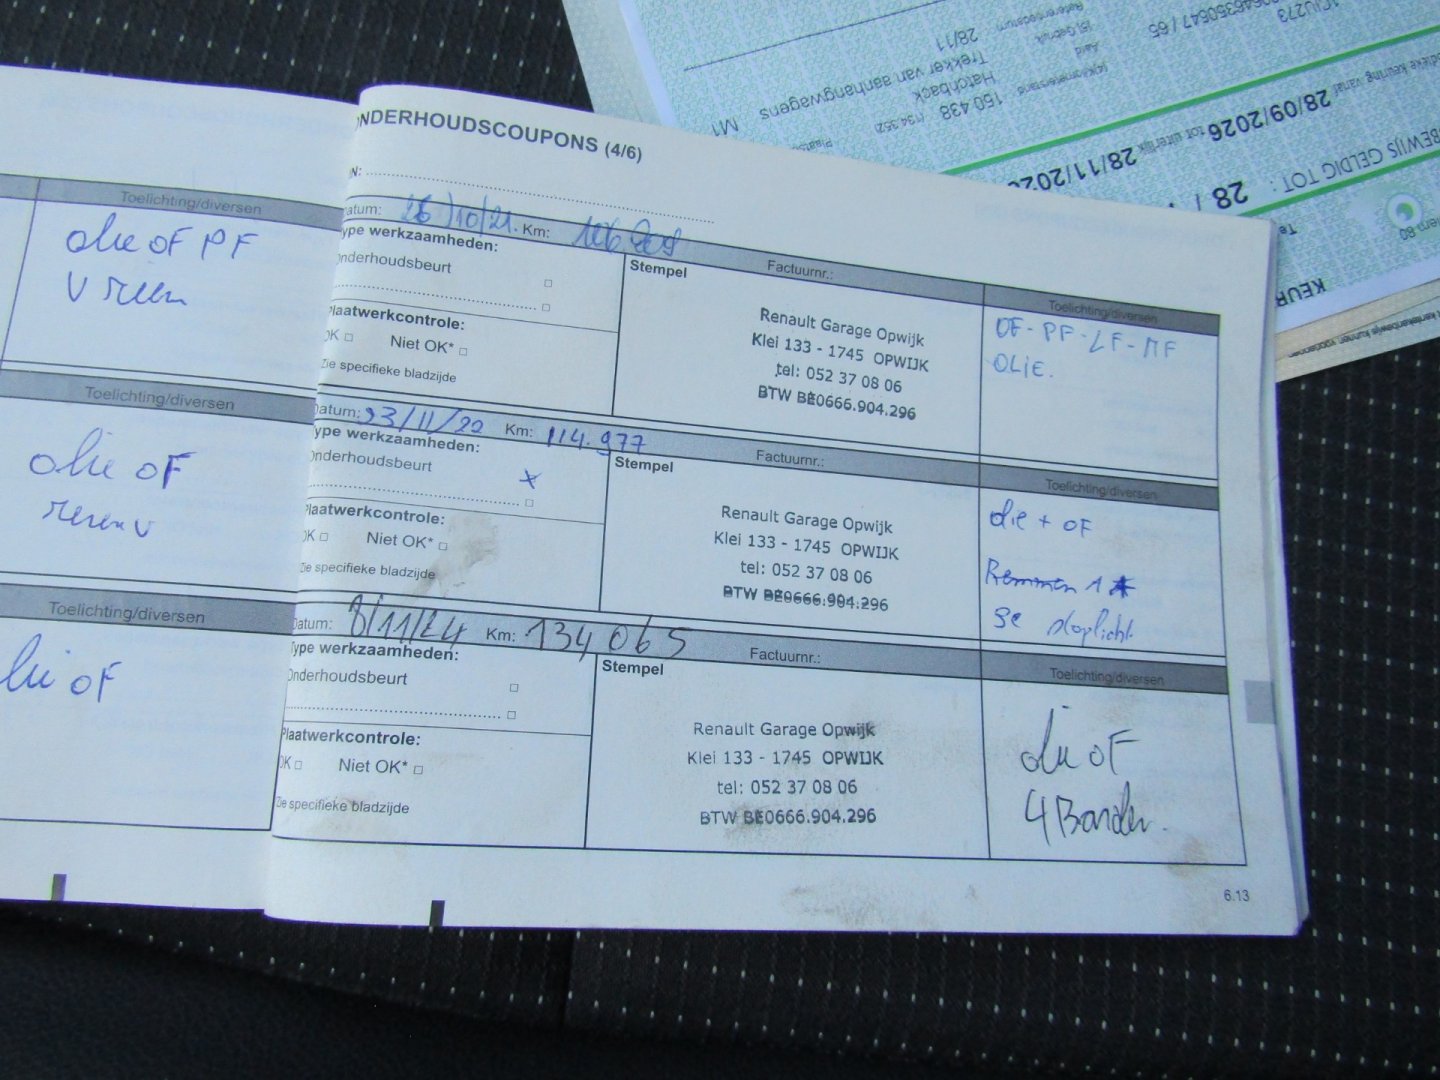 Toelichting/diversen
olie oF PF
Toelichting/diversen
olie oF
Toelichting/diversen
oF
ONDERHOUDSCOUPONS (4/6)
Datum: /10/21. Km:
Type werkzaamheden:
Onderhoudsbeurt
Plaatwerkcontrole:
OK Niet OK*
Zie specifieke bladzijde
Stempel
Factuurnr.:
Renault Garage Opwijk
Klei 133 - 1745 OPWIJK
tel: 052 37 08 06
BTW BE0666.904.296
Toelichting/diversen
OF - PF - LF - MF
OLIE.
Datum: 23/11/22 Km: 114.977
Type werkzaamheden:
Onderhoudsbeurt
Plaatwerkcontrole:
OK Niet OK*
Zie specifieke bladzijde
Stempel
Factuurnr.:
Renault Garage Opwijk
Klei 133 - 1745 OPWIJK
tel: 052 37 08 06
BTW BE0666.904.296
Toelichting/diversen
olie + oF
Remmen
3e stoplicht
Datum: 8/11/24 Km: 134065
Type werkzaamheden:
Onderhoudsbeurt
Plaatwerkcontrole:
OK Niet OK*
Zie specifieke bladzijde
Stempel
Factuurnr.:
Renault Garage Opwijk
Klei 133 - 1745 OPWIJK
tel: 052 37 08 06
BTW BE0666.904.296
Toelichting/diversen
olie oF
4 Banden.
6.13
KEUR
BEWIJS GELDIG TOT : 28 /
keuring vanaf 28/09/2026 tot uiterlijk 28/11/2026
(4)Kilometerstand 150 438 (134 352)
Aard Hatchback M1
(5) Gebruik Trekker van aanhangwagens
Referentiedatum 28/11